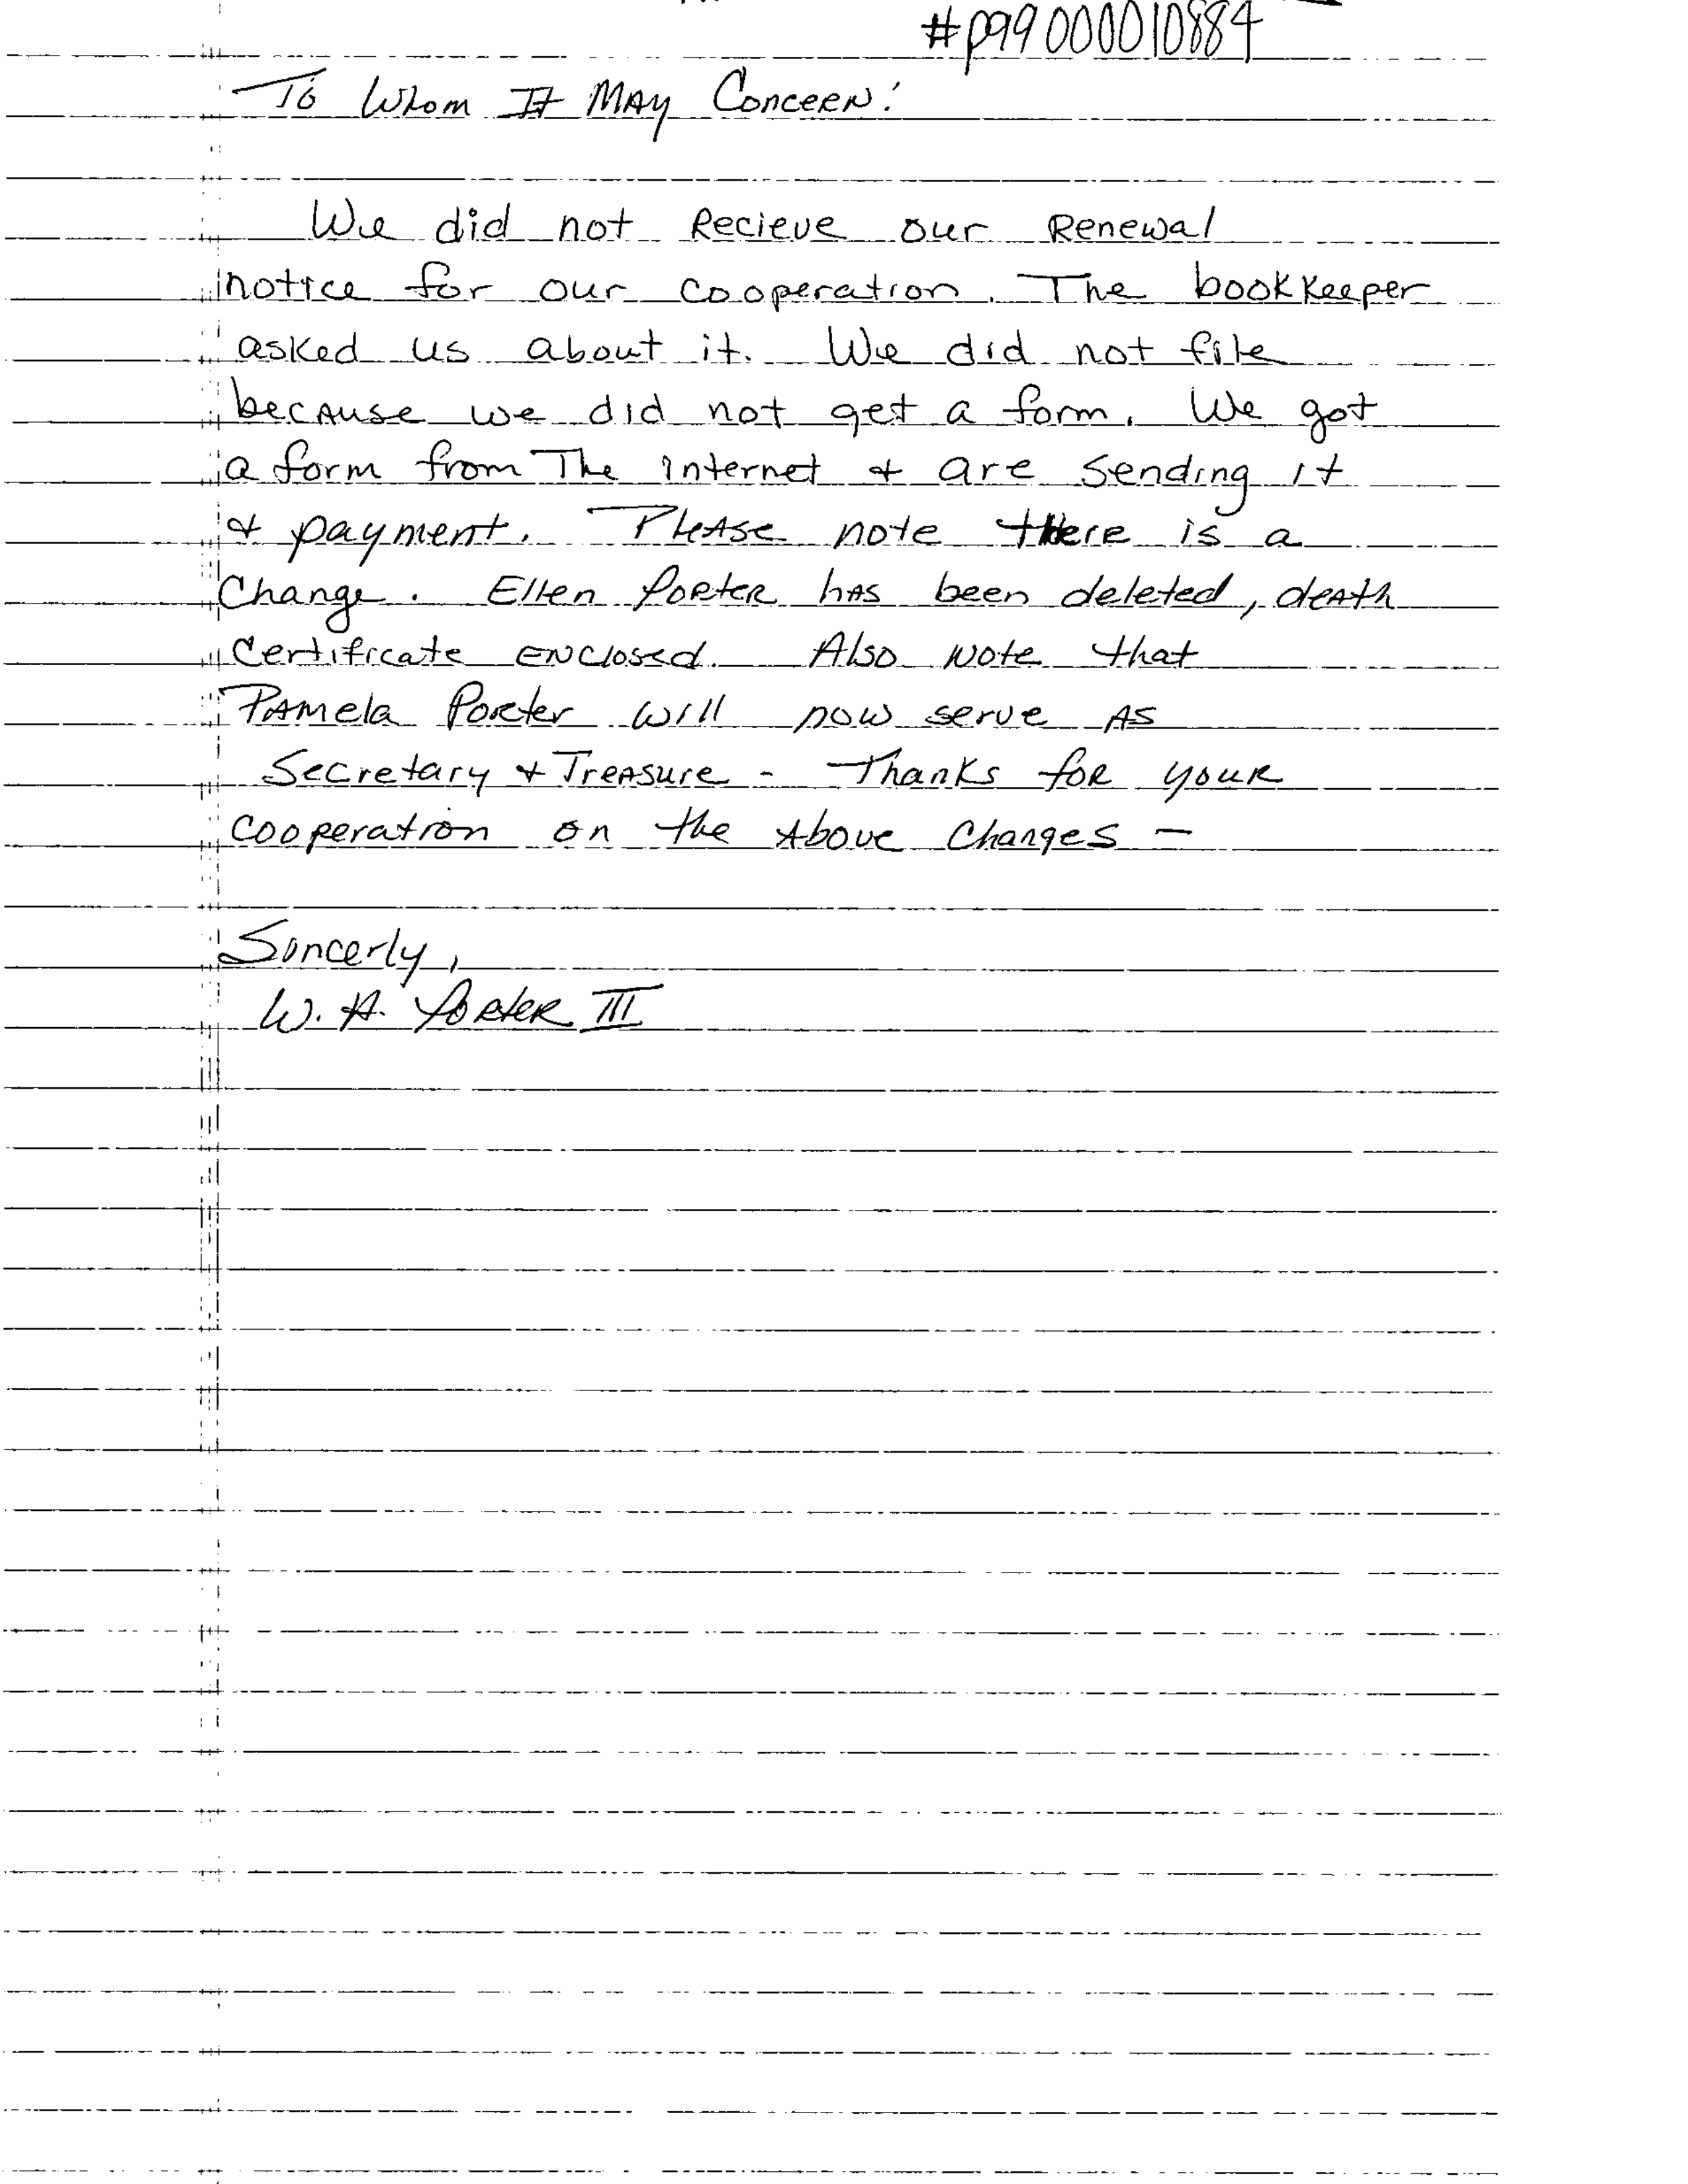 #P99000010884
To Whom It May Concern:
We did not Recieve our Renewal
notice for our cooperation. The bookkeeper
asked us about it. We did not file
because we did not get a form. We got
a form from The internet & are sending it
& payment. Please note there is a
Change. Ellen Porter has been deleted, death
Certificate enclosed. Also Note that
Pamela Porter will now serve as
Secretary & Treasure - Thanks for your
cooperation on the above changes -
Sincerly,
W. A. Porter III